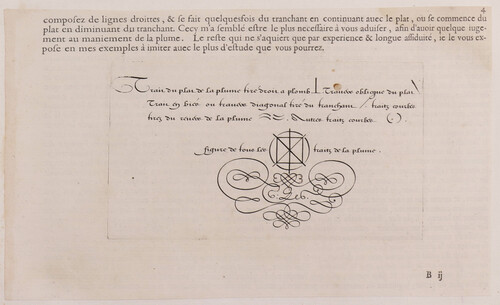 4
composez de lignes droittes, & se fait quelquesfois du tranchant en continuant auec le plat, ou se commence du
plat en diminuant du tranchant. Cecy m'a semblé estre le plus necessaire à vous aduiser, afin d'auoir quelque iuge-
ment au maniement de la plume. Le reste qui ne s'aquiert que par experience & longue assiduité, ie le vous ex-
pose en mes exemples à imiter auec le plus d'estude que vous pourrez.
Trait du plat de la plume tiré droit a plomb. Trauers oblique du plat
Trait en biais ou trauers diagonal tiré du tranchant / traits courbes
tirez du reuers de la plume. Autres traits courbes.
figure de tous les traits de la plume.
B ij